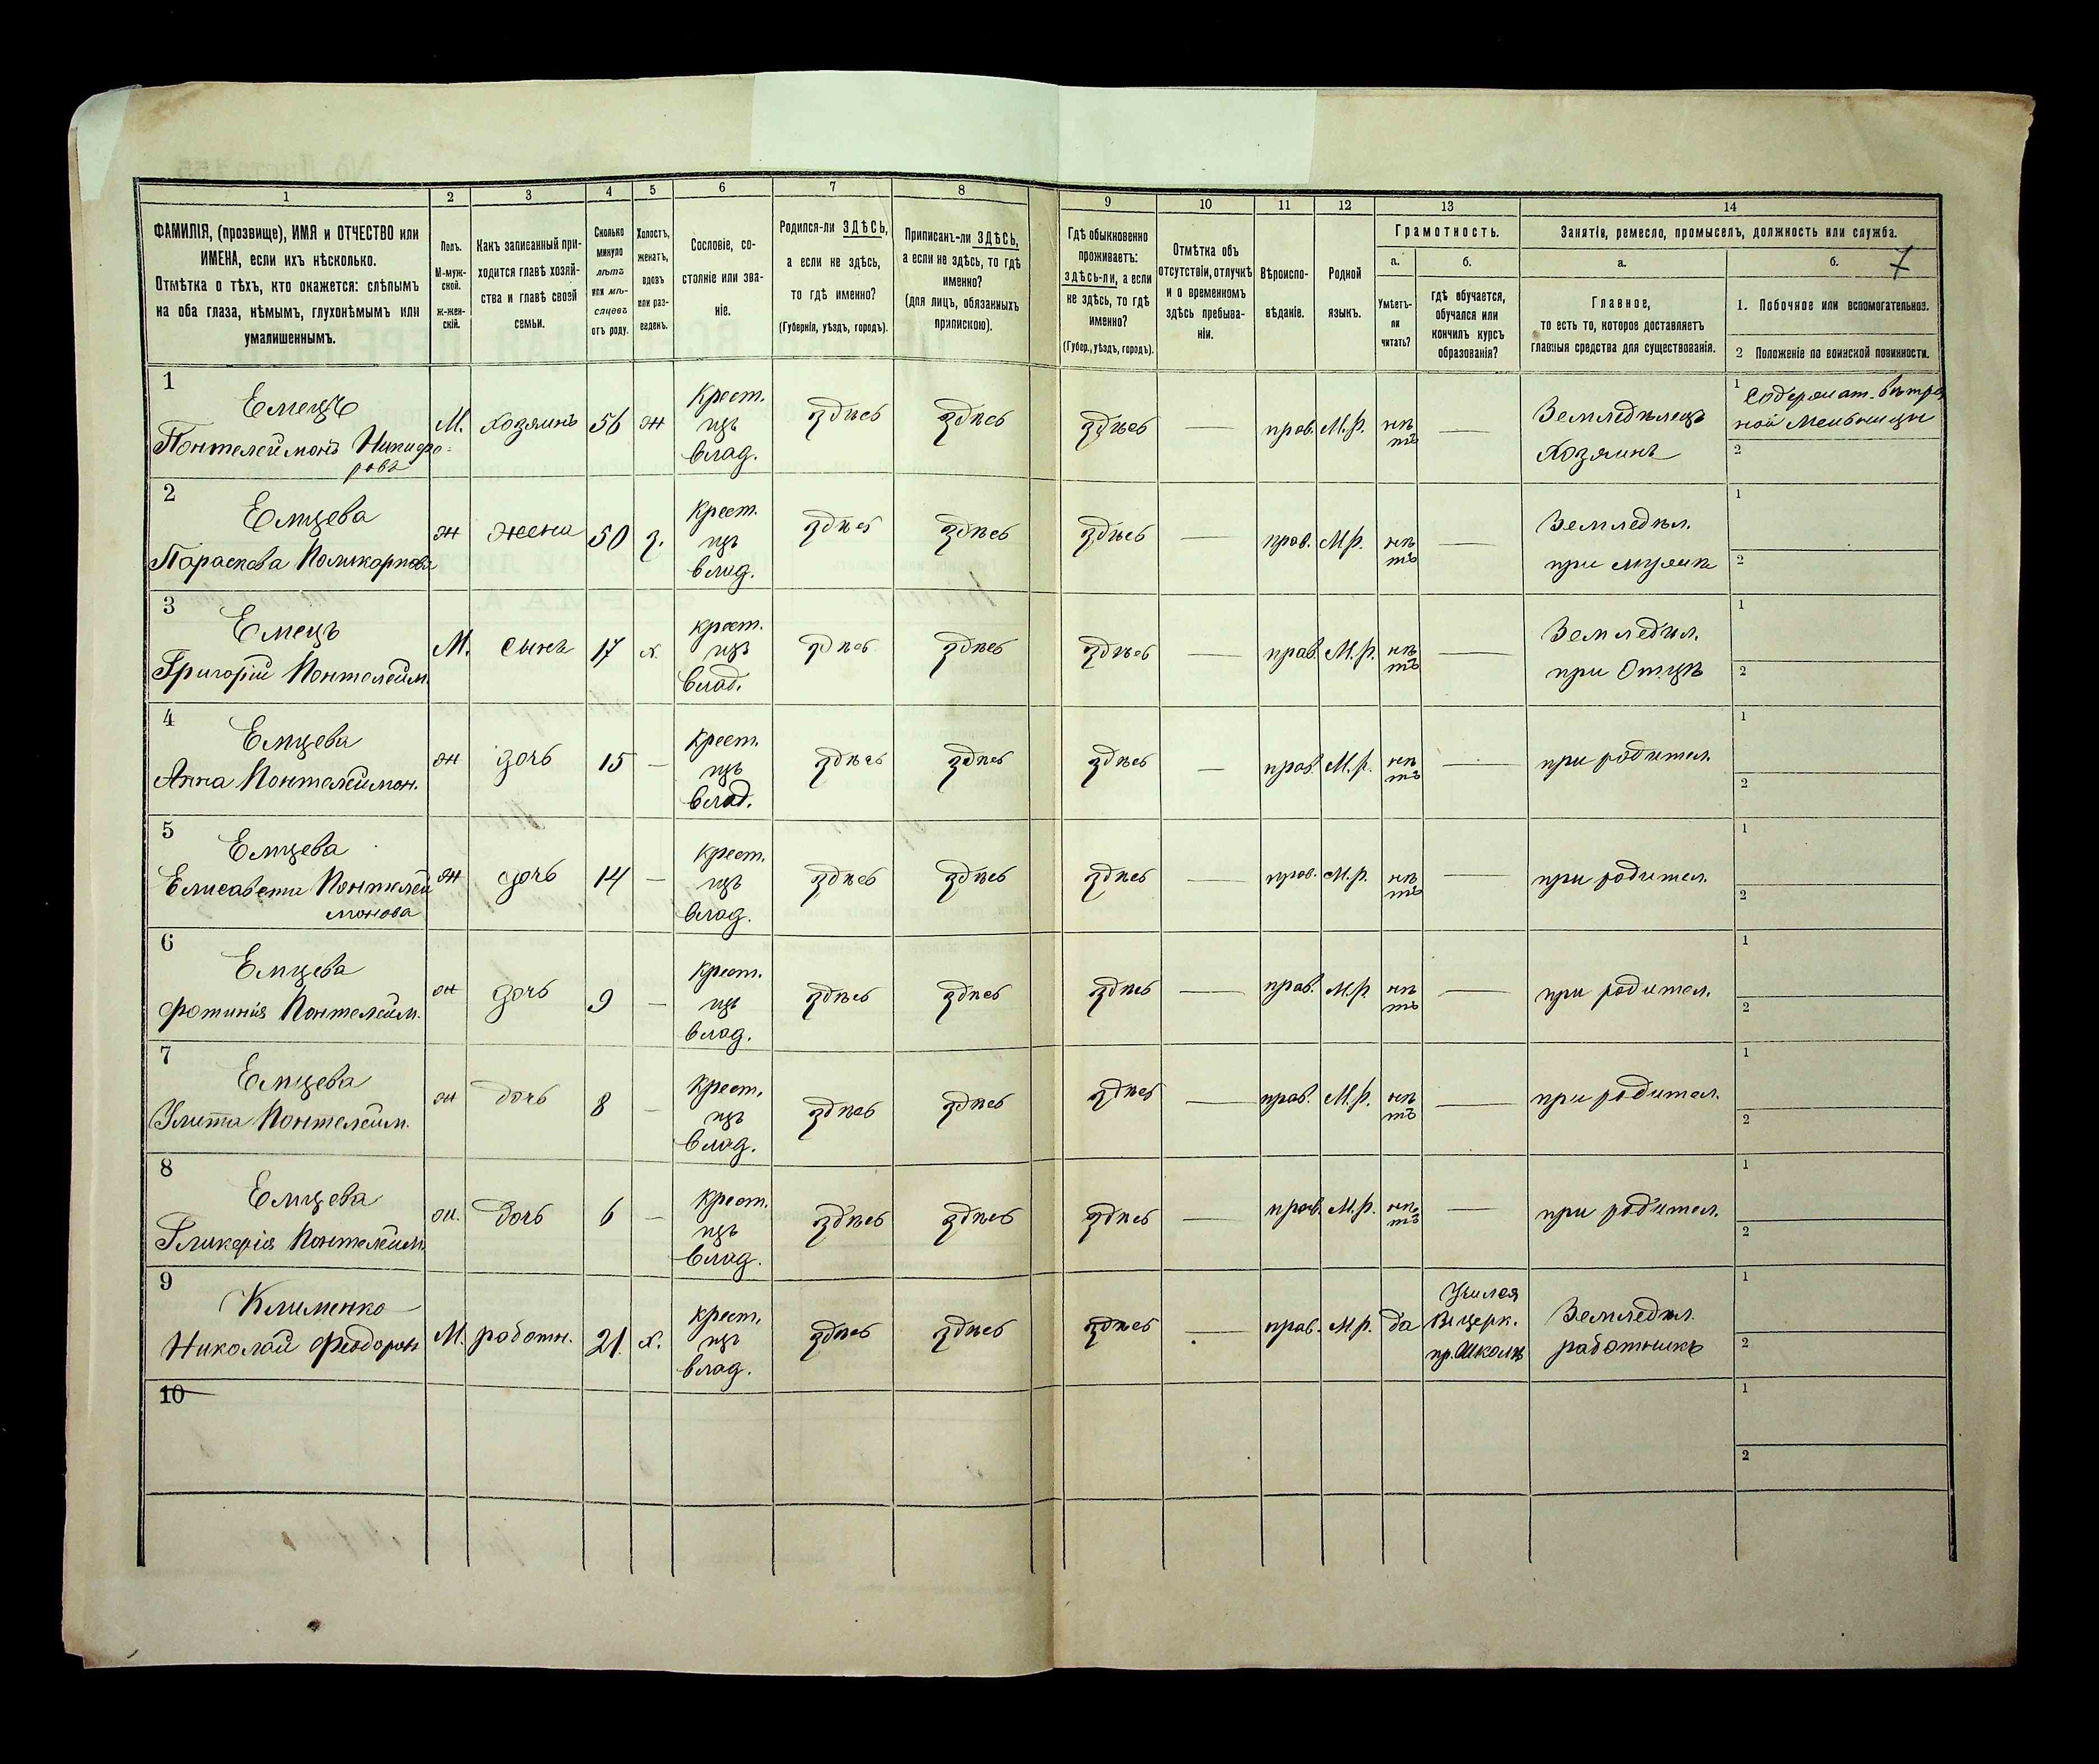 1 2 3 4 5 6 7 8 9 10 11 12 13 14
ФАМИЛІЯ, (прозвище), ИМЯ и ОТЧЕСТВО или
ИМЕНА, если ихъ нѣсколько.
Отмѣтка о тѣхъ, кто окажется: слѣпымъ
на оба глаза, нѣмымъ, глухонѣмымъ или
умалишеннымъ.
Полъ.
М-муж-
ской.
ж-жен-
скій.
Какъ записанный при-
ходится главѣ хозяй-
ства и главѣ своей
семьи.
Сколько
минуло
лѣтъ
или мѣ-
сяцевъ
отъ роду.
Холостъ,
женатъ,
вдовъ
или раз-
веденъ.
Сословіе, со-
стояніе или зва-
ніе.
Родился-ли ЗДѢСЬ,
а если не здѣсь,
то гдѣ именно?
(Губернія, уѣздъ, городъ).
Приписанъ-ли ЗДѢСЬ,
а если не здѣсь, то гдѣ
именно?
(для лицъ, обязанныхъ
припискою).
Гдѣ обыкновенно
проживаетъ:
здѣсь-ли, а если
не здѣсь, то гдѣ
именно?
(Губер., уѣздъ, городъ).
Отмѣтка объ
отсутствіи, отлучкѣ
и о временномъ
здѣсь пребыва-
ніи.
Вѣроиспо-
вѣданіе.
Родной
языкъ.
Грамотность.
а.
Умѣетъ-
ли
читать?
б.
гдѣ обучается,
обучался или
кончилъ курсъ
образованія?
Занятія, ремесло, промыселъ, должность или служба.
а.
Главное,
то есть то, которое доставляетъ
главныя средства для существованія.
б.
7
1. Побочное или вспомогательное.
2 Положеніе по воинской повинности.
1
Емецъ
Понтелеймонъ Никифо=
ровъ
М. хозяинъ 56 ж
Крест.
изъ
влад.
здѣсь здѣсь здѣсь — прав. М.р.
нѣ
тъ
—
Земледѣлецъ
Хозяинъ
1 Содержат. вѣтря
ной Мельницы
2
2
Емцева
Параскева Поликарпова
ж жена 50 з.
Крест.
изъ
влад.
здѣсь здѣсь здѣсь — прав. М.р.
нѣ
тъ
—
Земледѣл.
при мужѣ
1
2
3
Емецъ
Григорій Понтелейм.
М. сынъ 17 х.
крест.
изъ
влад.
здѣсь здѣсь здѣсь — прав. М.р.
нѣ
тъ
—
Земледѣл.
при Отцѣ
1
2
4
Емцева
Анна Понтелеймон.
ж дочь 15 —
Крест.
изъ
влад.
здѣсь здѣсь здѣсь — прав. М.р.
нѣ
тъ
—
при родител.
1
2
5
Емцева
Елисавета Понтелей
монова
ж дочь 14 —
Крест.
изъ
влад.
здѣсь здѣсь здѣсь — прав. М.р.
нѣ
тъ
—
при родител.
1
2
6
Емцева
Фотинія Понтелейм.
ж дочь 9 —
Крест.
изъ
влад.
здѣсь здѣсь здѣсь — прав. М.р.
нѣ
тъ
—
при родител.
1
2
7
Емцева
Улита Понтелейм.
ж дочь 8 —
Крест.
изъ
влад.
здѣсь здѣсь здѣсь — прав. М.р.
нѣ
тъ
—
при родител.
1
2
8
Емцева
Гликерія Понтелейм.
ж. дочь 6 —
Крест.
изъ
влад.
здѣсь здѣсь здѣсь — прав. М.р.
нѣ
тъ
—
при родител.
1
2
9
Клименко
Николай Феодоровъ
М. работн. 21. х.
крест.
изъ
влад.
здѣсь здѣсь здѣсь — прав. М.р. да
Учился
въ церк.
пр. Школѣ
Земледѣл.
работникъ
1
2
10
1
2